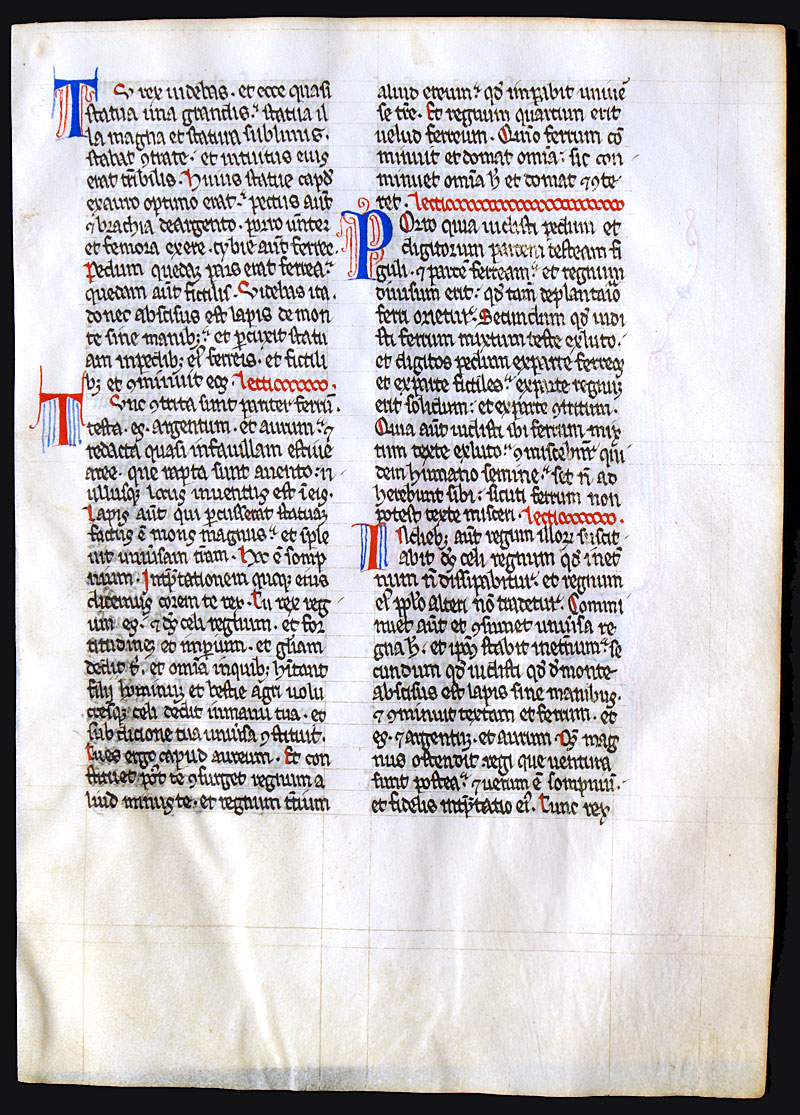 TU rex videbas. et ecce quasi
statua una grandis. statua il
la magna et statura sublimis.
stabat ꝯtra te. et intuitus eiꝰ
erat tͬribilis. Huius statue capđ
ex auro optimo erat. pectus aut̄
⁊ brachia de argento. porro uēnter
et femora ex ere. tybie aut̄ ferree
Pedum quedā pars erat ferrea.
quedam aut̄ fictilis. Videbas ita.
donec abscisus est lapis de mon
te sine manibꝫ. et ꝑcussit statu
am in pedibꝫ eiꝰ ferreis. et fictili
bꝫ et ꝯminuit eos. lectio
TUnc ꝯtrita sunt pariter ferrū.
testa. es. argentum. et aurum. ⁊
redacta quasi in fauillam estiue
aree. que rapta sunt a uento. n̄
ullusqꝫ locus inuentus est in eis.
Lapis aut̄ qui percusserat statuā
factus ē mons magnus. et īple
uit uniuersam terram. Hoc ē somp
nium. Intp̄tationem quoqꝫ eius
dicemus coram te rex. Tu rex reg
um es. ⁊ dꝰ celi regnum. et for
titudinē et imperium. et gloriam
dedit t̄. et omnia in quibꝫ habitant
filii hominū et bestie agri uolu
cresqꝫ celi dedit in manu tua. et
sub dicione tua uniuersa ꝯstituit.
Tu es ergo capud aureum. Et con
surget post te ꝯsurget regnum a
liud minus te. et regnum tercium
aliud ereum. qđ impabit uniūe
se tre. Et regnum quartum erit
uelud ferreum. Quō ferrum cō
minuit et domat omīa. sic con
minuet omīa h̄ et domat ⁊ ꝯte
ret. lectio
POrro quia uidisti pedum et
digitorum partem testeam fi
guli. ⁊ partē ferream. et regnum
diuisum erit. qđ tam̄ de plantaīo
ferri orietur. Secundum qđ uidi
sti ferrum mixtum teste ex luto.
et digitos pedum ex parte ferreos
et ex parte fictiles. ex parte regnū
erit solidum. et ex parte ꝯtritum.
Quia aut̄ uidisti ibi ferrum mix
tum texte ex luto. ꝯmiscebunt̄ qui
dem humatio semine. set n̄ ad
herebunt sibi. sicuti ferrum non
potest texte misceri. lectio
IN diebꝫ aut̄ regum illoꝝ suscit
abit dꝰ celi regnum qđ in et̄
num n̄ dissipabitur. et regnum
eiꝰ pplo alteri nō tradetur. Commi
nuet aut̄ et ꝯsumet uniūsa re
gna h̄. et ipm̄ stabit in et̄num. se
cundum qđ uidisti qđ d̄ monte
abscisus est lapis sine manibus.
⁊ ꝯminuit textam et ferrum. et
es. ⁊ argentū. et aurum Dꝰ mag
nus ostendit regi que uentura
sunt postea. ⁊ uerum ē sompnium.
et fidelis intp̄tatio eiꝰ. Tunc rex